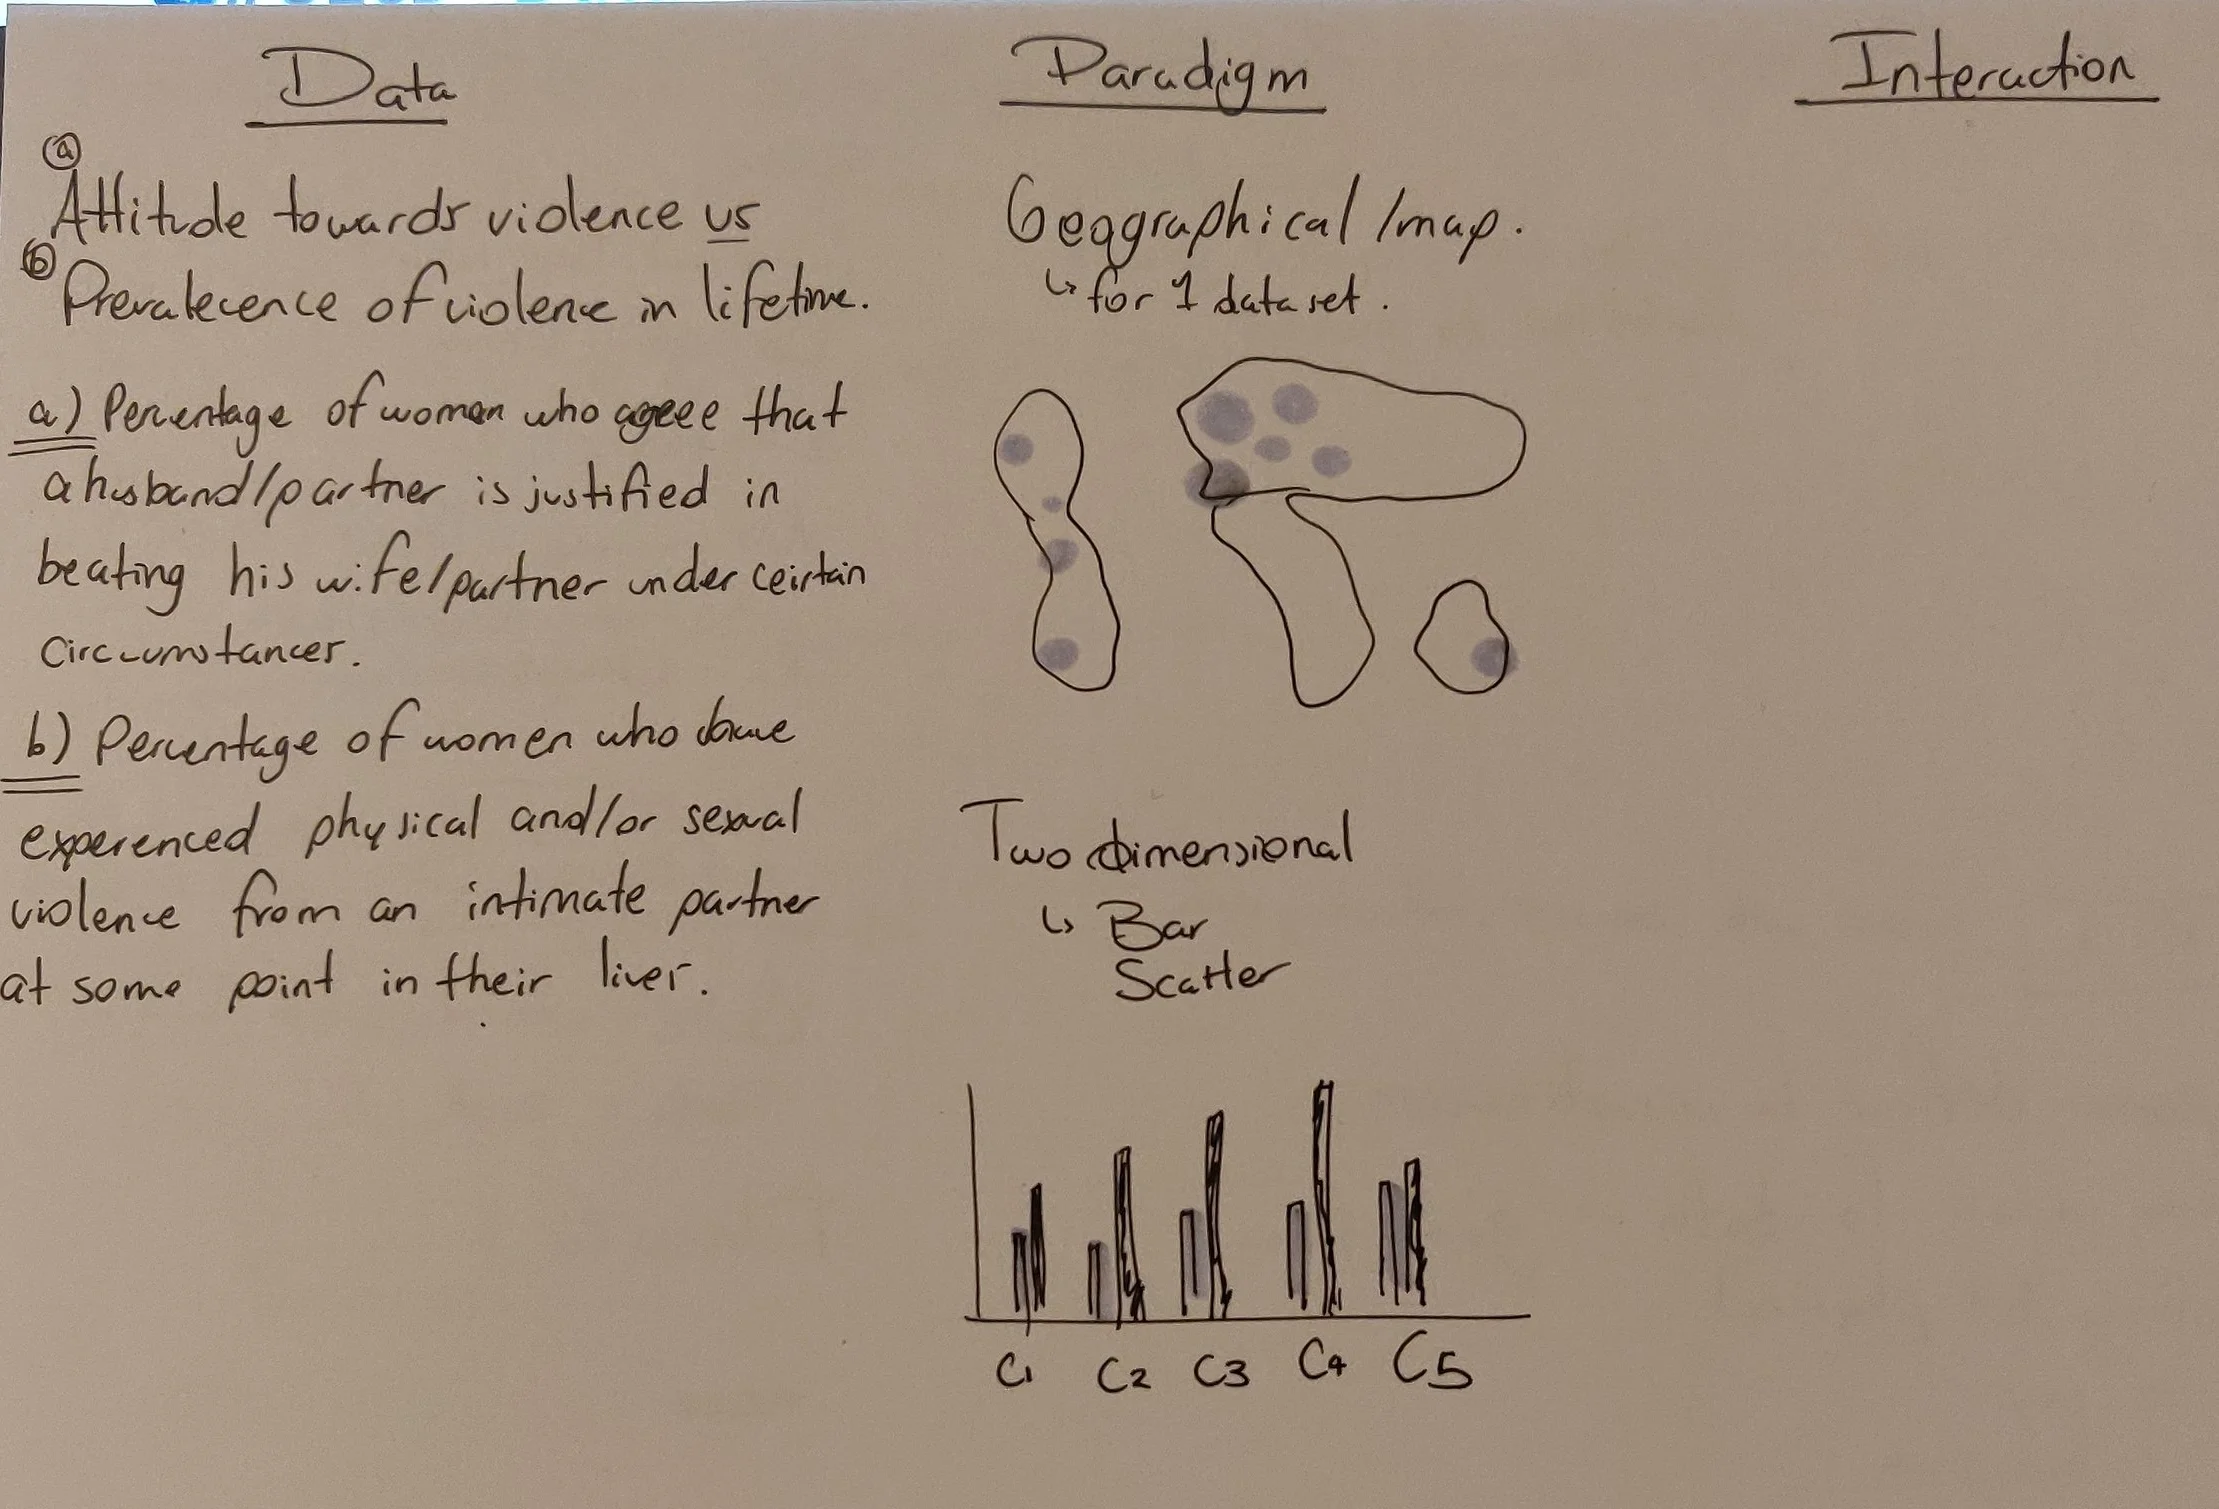 Data
ⓐ
Attitude towards violence vs
ⓑ
Prevalecence of violence in lifetime.
a) Percentage of women who agree that
a husband/partner is justified in
beating his wife/partner under ceirtain
circumstances.
b) Percentage of women who have
experenced physical and/or sexual
violence from an intimate partner
at some point in their lives.
Paradigm
Geographical /map.
↳ for 1 data set.
Two dimensional
↳ Bar
Scatter
C1 C2 C3 C4 C5
Interaction